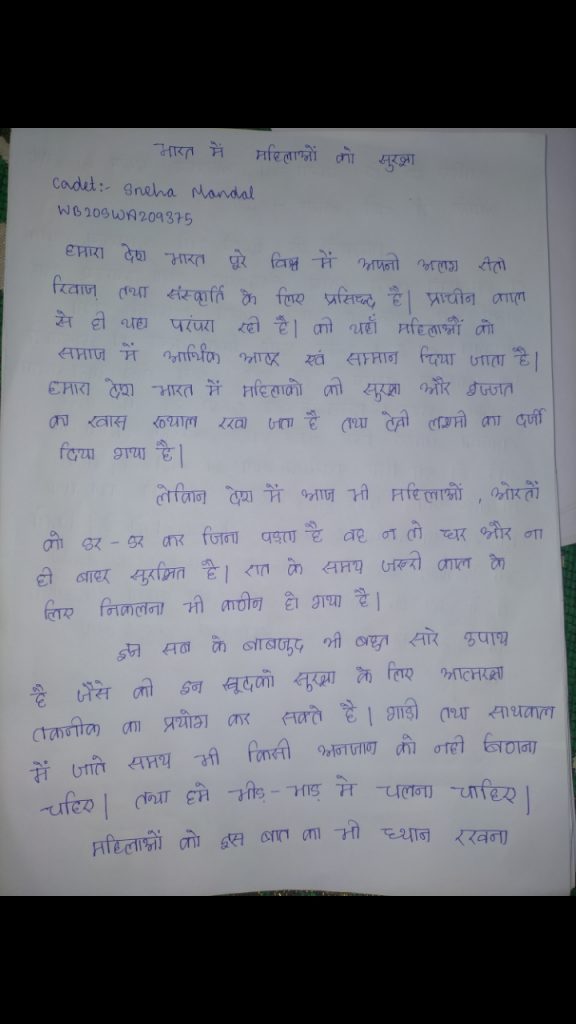 भारत में महिलाओं की सुरक्षा
Cadet:- Sneha Mandal
WB20SWA209375
हमारा देश भारत पूरे विश्व में अपनी अलग रीती
रिवाज तथा संस्कृति के लिए प्रसिध्द है| प्राचीन काल
से ही यहा परंपरा रही है| की यहाँ महिलाओं को
समाज में आर्थिक आदर एवं सम्मान दिया जाता है|
हमारा देश भारत में महिलाको की सुरक्षा और इज्जत
का खास ख्याल रखा जता है तथा देवी लक्ष्मी का दर्जा
दिया गया है|
लेकिन देश में आज भी महिलाओं , ओरतों
को डर - डर कर जिना पडता है वह न तो घर और ना
ही बाहर सुरक्षित है| रात के समय जरुरी काल के
लिए निकलना भी कठीन हो गया है|
इन सब के बाबजुद भी बहुत सारे उपाय
है जैसे की इन खूदकी सुरक्षा के लिए आत्मरक्षा
तकनीक का प्रयोग कर सकते है| गाडी तथा सायकाल
में जाते समय भी किसी अनजाण को नही बिठाना
चहिए| तथा हमे भीड़ - भाड़ मे चलना चाहिए|
महिलाओं को इस बात का भी ध्यान रखना